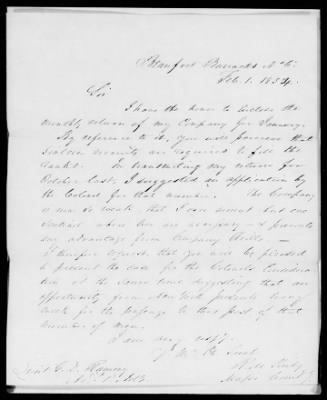 Beaufort Barracks N.C.
Feb. 1. 1834.
Sir
I have the honor to enclose the
monthly return of my Company for January.
By reference to it, you will perceive that
recruits are required to fill the
In transmitting my return for
October last, I suggested an application by
the Colonel for that number. The Company
is now so weak that I can mount but one
sentinel when here as
any advantage from Company drills.
I therefore request that you will be pleased
to present the case for the Colonels
at the same time suggesting that an
opportunity from New York presents every
week for the passage to this post of that
number of men.
I am very respy.
Yr. Mo. Ob. Servt.
Major Comdg.
Lieut.